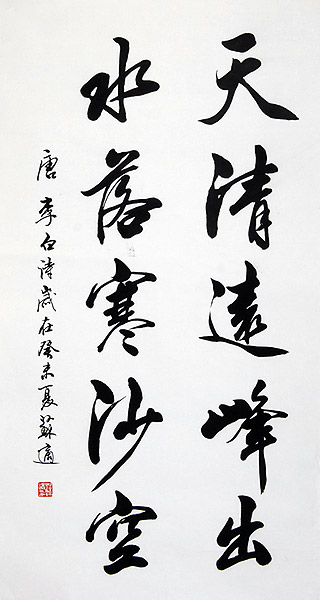 天清遠峰出
水落寒沙空
唐李白詩歲在癸未夏蘇適